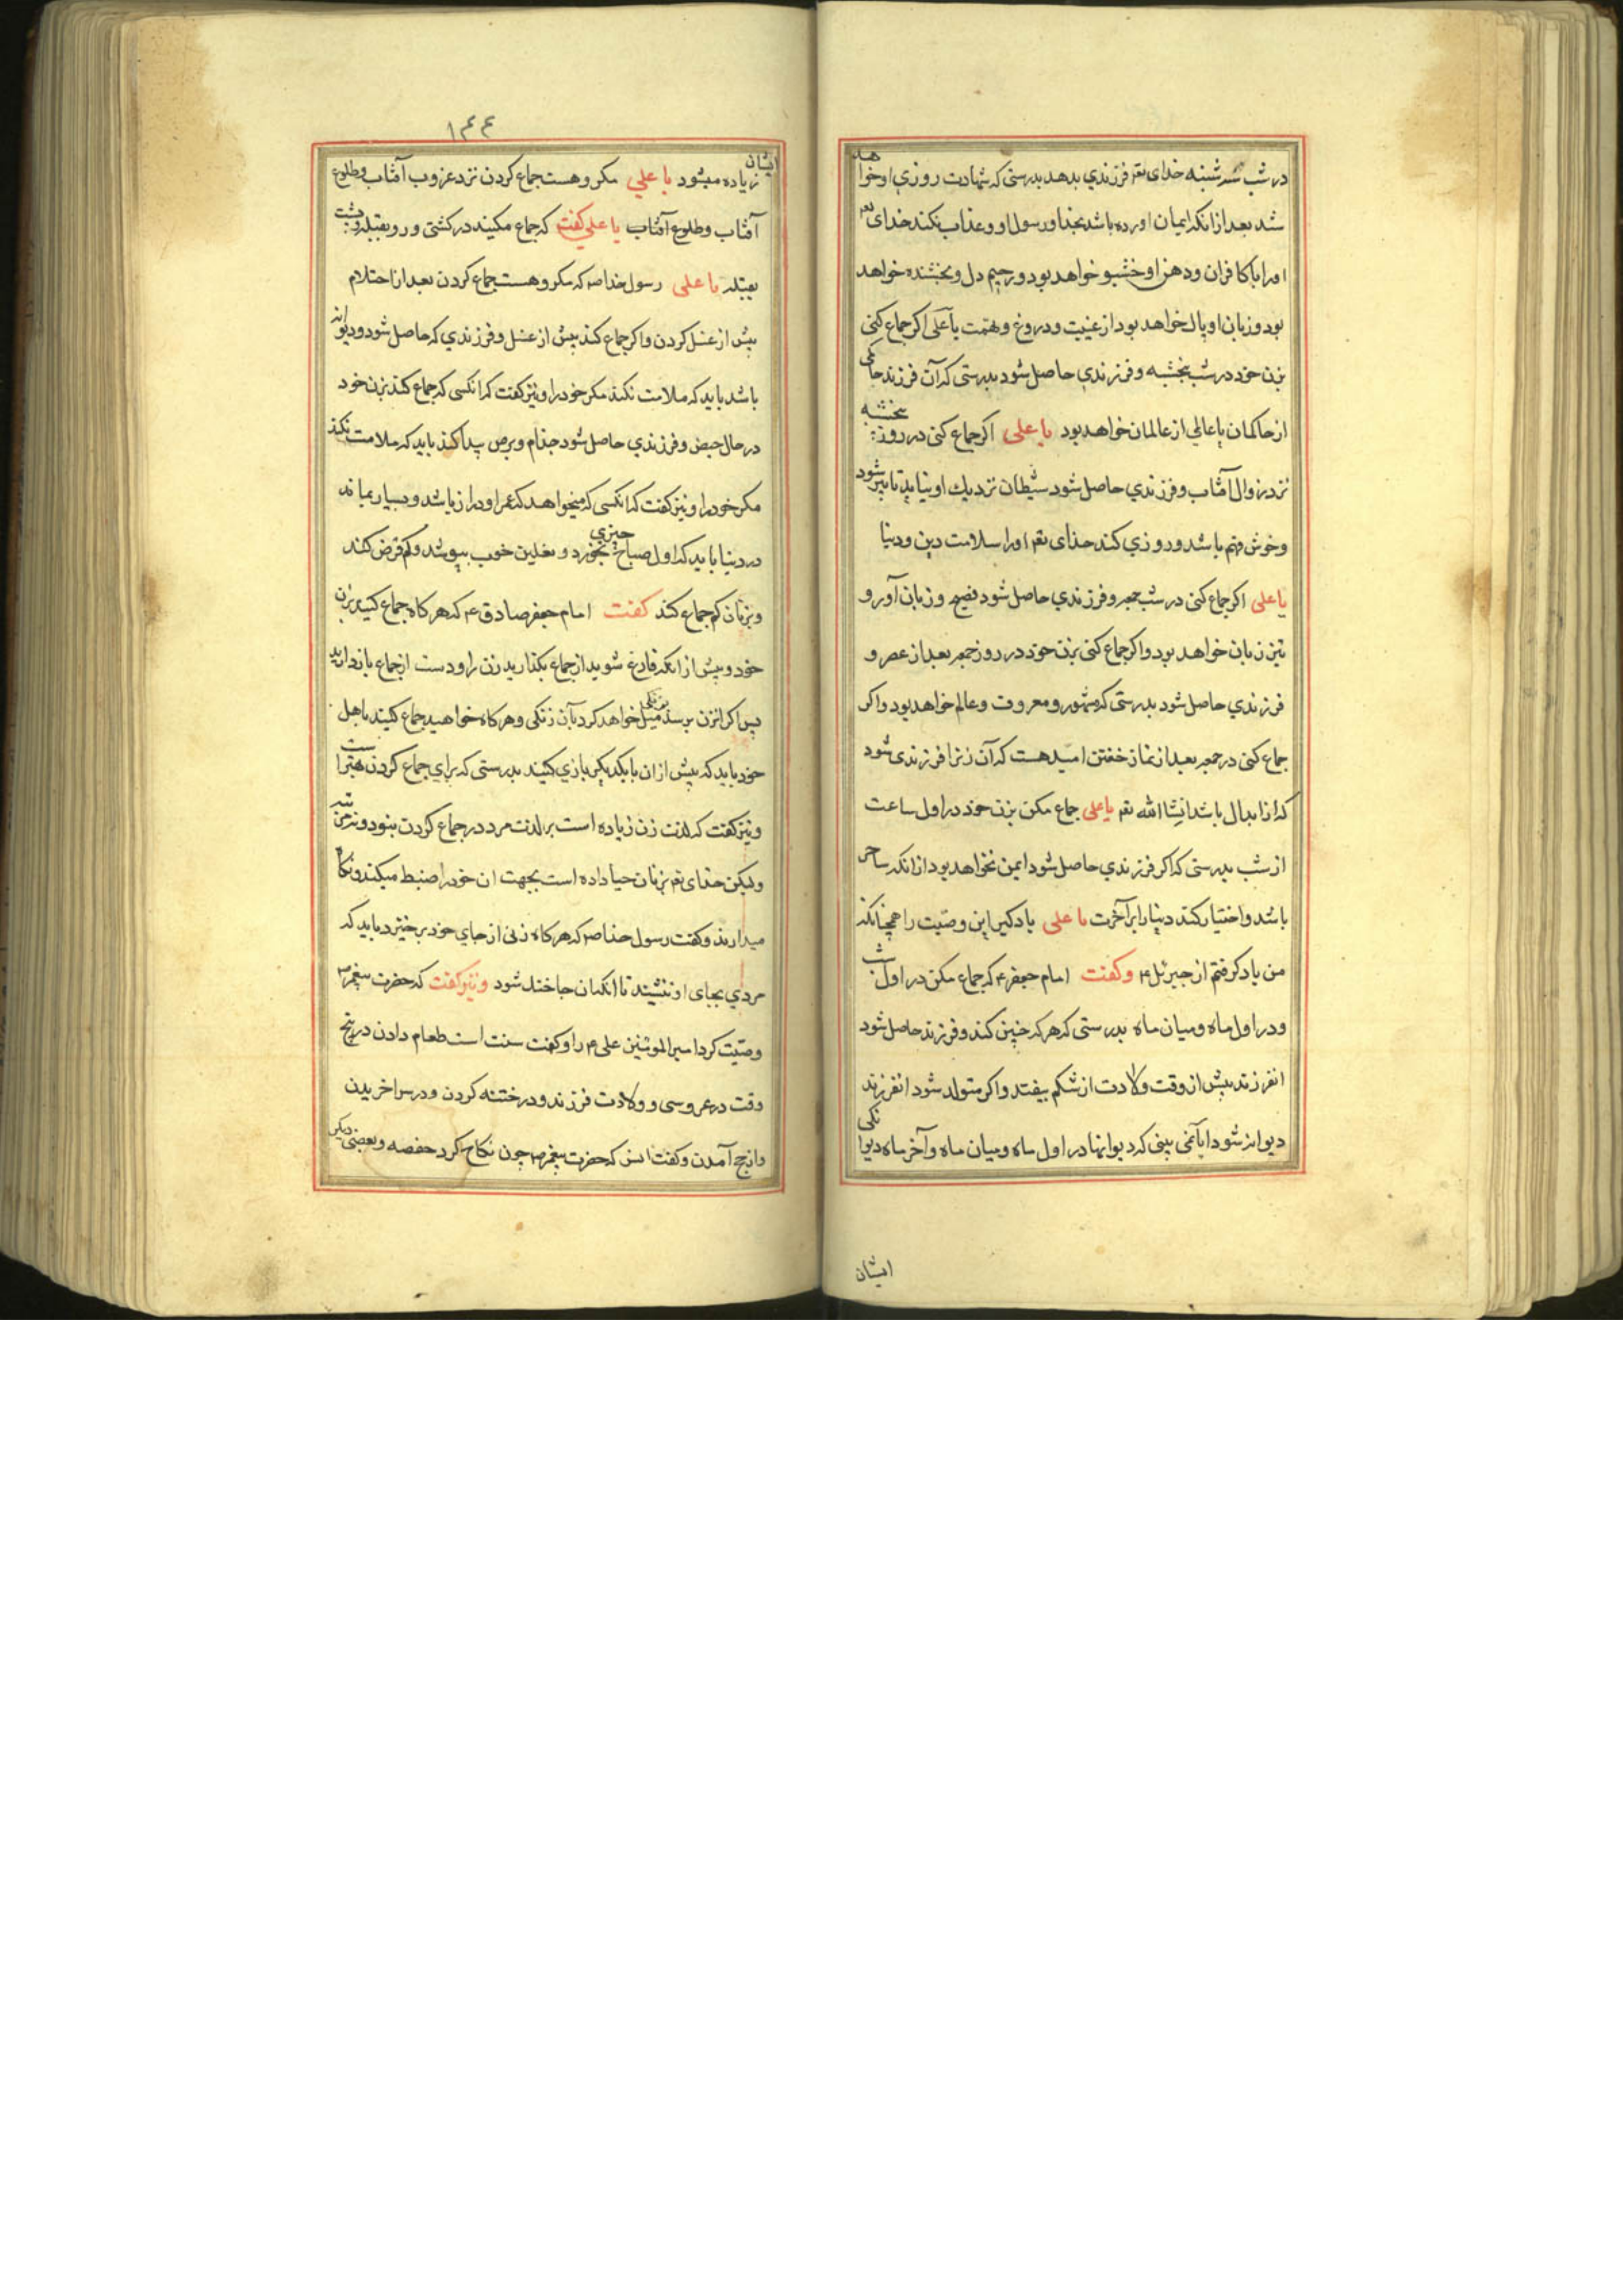 در شب سه شنبه خدای تعم فرزندي بدهد بدرستی که شهادت روزي او خواهد
شد بعد از انکه ایمان اورده باشد بخدا و رسول او و عذاب نکند خدای تعم
اورا با کافران و دهن او خشبو خواهد بود و رحیم دل و بخشنده خواهد
بود و زبان او پاك خواهد بود از غیبت و دروغ و بهتمت یا علی اکر جماع کنی
بزن خود در شب پنجشبه و فرزندي حاصل شود بدرستی که آن فرزند حاکمی
از حاکمان یا عالمي از عالمان خواهد بود یا علی اکر جماع کنی در روز پنجشبه
نزد زوال آفتاب و فرزندي حاصل شود شیطان نزدیك او نیاید تا پیر شود
و خوش فهم باشد و روزي کند خدای تعم اورا سلامت دین و دنیا
یا علی اکر جماع کنی در شب جمعه و فرزندي حاصل شود فصیح و زبان آور و
تیز زبان خواهد بود و اکر جماع کنی بزن خود در روز جمعه بعد از عصر و
فرزندي حاصل شود بدرستی که مشهور و معروف و عالم خواهد بود و اکر
جماع کنی در جمعه بعد از نماز خفتن امید هست که آن زنرا فرزندی شود
که از ابدال باشد انشا الله تعم یا علی جماع مکن بزن خود در اول ساعت
از شب بدرستی که اکر فرزندي حاصل شود ایمن نخواهد بود از انکه ساحر
باشد و اختیار کند دنیا را بر آخرت یا علی یاد کیر این وصیت را همچنانکه
من یاد کرفتم از جبرئیل ع و کفت امام جعفر ع که جماع مکن در اول شب
و در اول ماه و میان ماه بدرستی که هر که چنین کند و فرزند حاصل شود
انفرزند پیش از وقت ولادت از شکم بیفتد و اکر متولد شود انفرزند
دیوانه شود ایا نمی بینی که دیوانها در اول ماه و میان ماه و آخر ماه دیوانکی
ایشان
۱۴۴
ایشان زیاده میشود یا علي مکروهست جماع کردن نزد غروب آفتاب و طلوع
آفتاب و طلوع آفتاب یا علي کفت که جماع مکنید در کشتی و رو بقبله و پشت
بقبله یا علی رسول خدا صم که مکروهست جماع کردن بعد از احتلام
پیش از غسل کردن و اکر جماع کند پیش از غسل و فرزندي که حاصل شود و دیوانه
باشد باید که ملامت نکند مکر خود را و نیز کفت که انکسی که جماع کند بزن خود
در حال حیض و فرزندي حاصل شود جذام و برص پیدا کند باید که ملامت نکند
مکر خود را و نیز کفت که انکسی که میخواهد که عمر او دراز باشد و بسیار بماند
در دنیا باید که اول صباح چیزي بخورد و نعلین خوب بپوشد و کم قرض کند
و بزنان کم جماع کند کفت امام جعفر صادق ع که هر کاه جماع کنید بزن
خود و پیش از انکه فارغ شوید از جماع بکذارید زن را و دست از جماع باز دارید
پس اکر انزن برسد بزنکی میل خواهد کرد بآن زنکی و هر کاه خواهید جماع کنید باهل
خود باید که پیش از ان با یکدیکر بازي کنید بدرستی که براي جماع کردن بهتر است
و نیز کفت که لذت زن زیاده است بر لذت مرد در جماع کردن بنود و نه مرتبه
ولیکن خدای تعم بزنان حیا داده است بجهت ان خود را ضبط میکنند و نکاه
میدارند و کفت رسول خدا صم که هر کاه زنی از جاي خود برخیزد باید که
مردي بجای او ننشیند تا انکه ان جا خنك شود و نیز کفت که حضرت پیغمبر ص
وصیت کرد امیر المومنین علی ع را و کفت سنت است طعام دادن در پنج
وقت در عروسی و ولادت فرزند و در ختنه کردن و در سرا خریدن
و از حج آمدن و کفت انس که حضرت پیغمبر ص چون نکاح کرد حفصه و بعضی دیکر